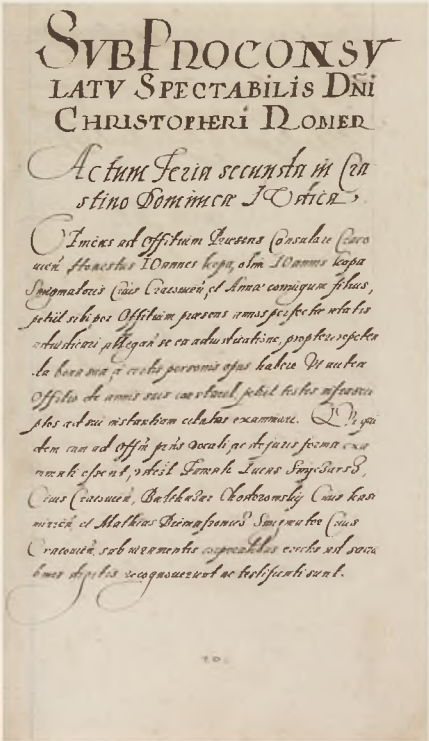 SVB PROCONSV
LATV SPECTABILIS DÑI
CHRISTOPHERI ROMER
Actum Feria secunda in Cra
stino Dominicæ
ad Offitium Præsens Consulare Craco
uien̄ Honestus IOannes kopa, olim IOannis kopa
Ciuis Cracouien̄, et Annæ coniugum filius,
petiit sibi per Offitium præsens annos perfectæ ætatis
adiudicari, allegans se ea adiudicatione, propter repeten
da bona sua, a certis personis opus habere. Vt autem
Offitio de annis suis constaret, petiit testes infrascri
ptos ad sui instantiam citatos examinari. Qui qui
dem cum ad Offm̄ pn̄s vocati, ac de iuris forma exa
minati essent, Lucas
Ciuis Cracouien̄, Balthasar Ciuis kasi
mirien̄, et Mathias Ciuis
Cracouien̄, sub iuramentis corporalibus
recognouerunt ac testificati sunt.